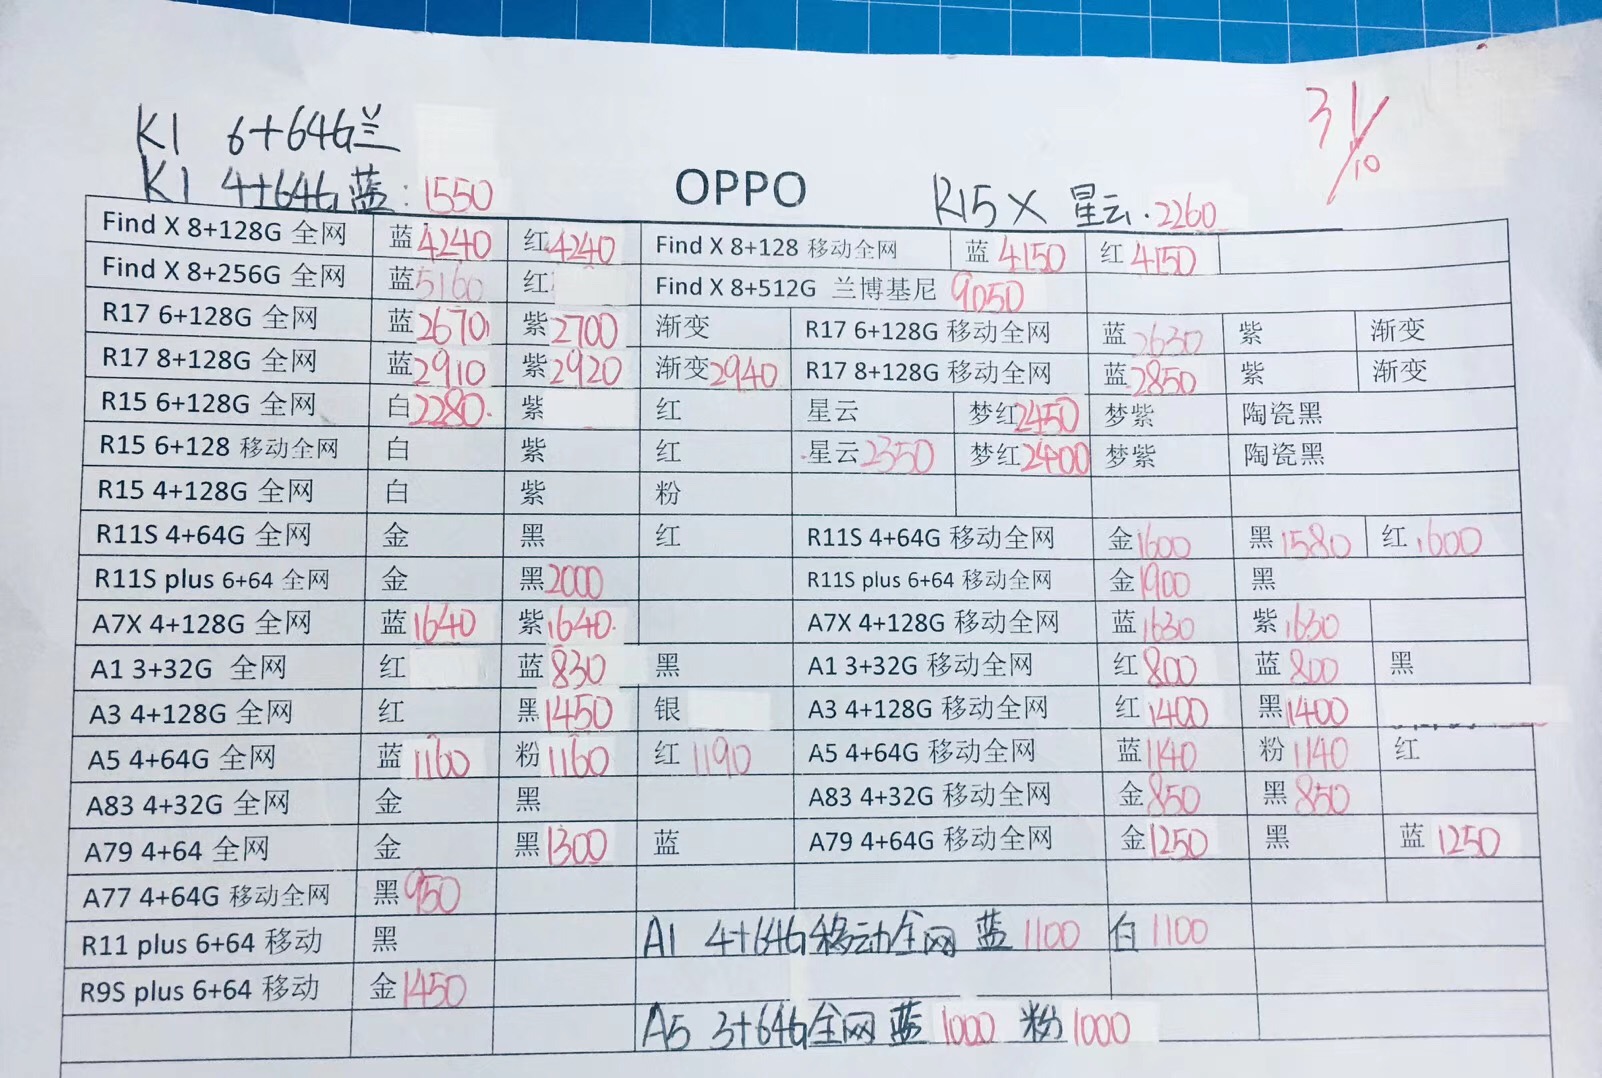 31/10
K1 6+64G兰
K1 4+64G蓝:1550 OPPO R15X 星云.2260
Find X 8+128G 全网 蓝4240 红4240 Find X 8+128 移动全网 蓝4150 红4150
Find X 8+256G 全网 蓝5160 红 Find X 8+512G 兰博基尼 9050
R17 6+128G 全网 蓝2670 紫2700 渐变 R17 6+128G 移动全网 蓝2630 紫 渐变
R17 8+128G 全网 蓝2910 紫2920 渐变2940 R17 8+128G 移动全网 蓝2850 紫 渐变
R15 6+128G 全网 白2280. 紫 红 星云 梦红2450 梦紫 陶瓷黑
R15 6+128 移动全网 白 紫 红 星云2350 梦红2400 梦紫 陶瓷黑
R15 4+128G 全网 白 紫 粉
R11S 4+64G 全网 金 黑 红 R11S 4+64G 移动全网 金1600 黑1580 红1600
R11S plus 6+64 全网 金 黑2000 R11S plus 6+64 移动全网 金1900 黑
A7X 4+128G 全网 蓝1640 紫1640. A7X 4+128G 移动全网 蓝1630 紫1630
A1 3+32G 全网 红 蓝830 黑 A1 3+32G 移动全网 红800 蓝800 黑
A3 4+128G 全网 红 黑1450 银 A3 4+128G 移动全网 红1400 黑1400
A5 4+64G 全网 蓝1160 粉1160 红1190 A5 4+64G 移动全网 蓝1140 粉1140 红
A83 4+32G 全网 金 黑 A83 4+32G 移动全网 金850 黑850
A79 4+64 全网 金 黑1300 蓝 A79 4+64G 移动全网 金1250 黑 蓝1250
A77 4+64G 移动全网 黑950
R11 plus 6+64 移动 黑 A1 4+64G移动全网 蓝1100 白1100
R9S plus 6+64 移动 金1450
A5 3+64G全网 蓝1000 粉1000